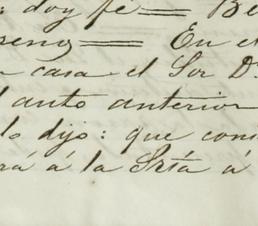 : doy fe = Be
reng = En el
casa el Sor Dn
anto anterior
lo dijo: que cons
rá á la Srta á